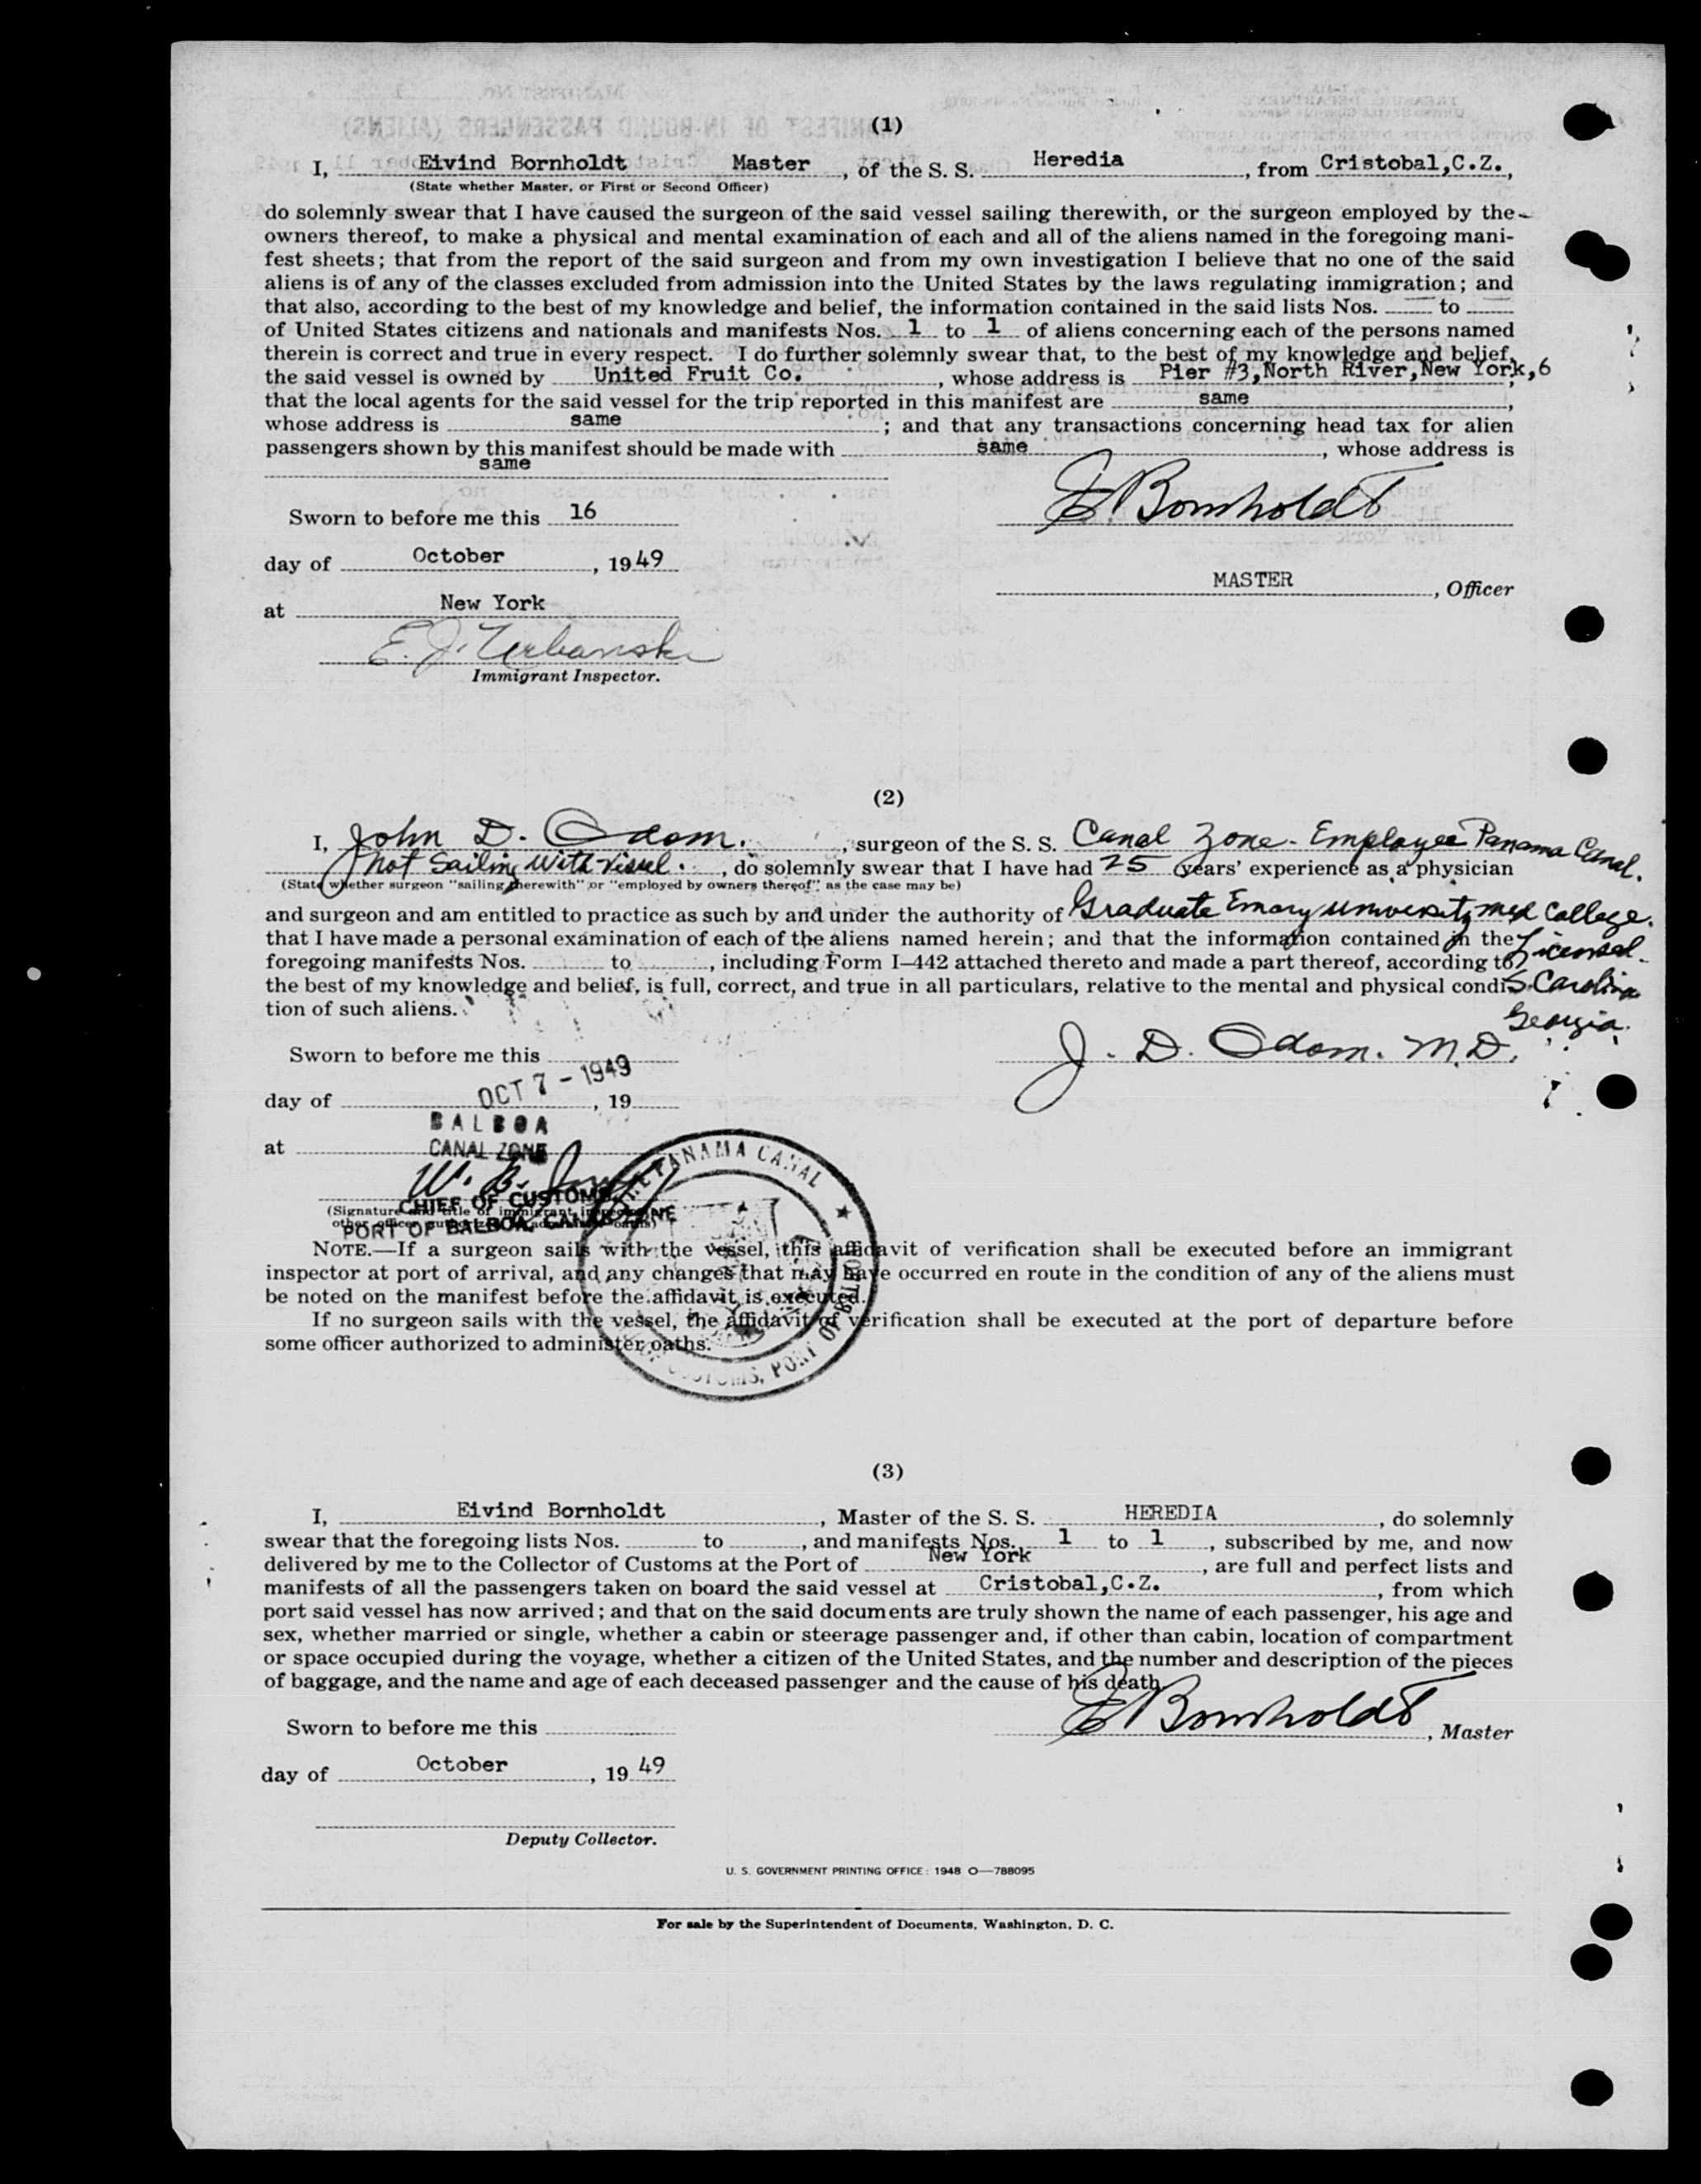 (1)
I, Eivind Bornholdt Master, of the S. S. Heredia, from Cristobal,C.Z.,
(State whether Master, or First or Second Officer)
do solemnly swear that I have caused the surgeon of the said vessel sailing therewith, or the surgeon employed by the
owners thereof, to make a physical and mental examination of each and all of the aliens named in the foregoing mani-
fest sheets; that from the report of the said surgeon and from my own investigation I believe that no one of the said
aliens is of any of the classes excluded from admission into the United States by the laws regulating immigration; and
that also, according to the best of my knowledge and belief, the information contained in the said lists Nos. — to —
of United States citizens and nationals and manifests Nos. 1 to 1 of aliens concerning each of the persons named
therein is correct and true in every respect. I do further solemnly swear that, to the best of my knowledge and belief,
the said vessel is owned by United Fruit Co., whose address is Pier #3,North River,New York,6
that the local agents for the said vessel for the trip reported in this manifest are same,
whose address is same; and that any transactions concerning head tax for alien
passengers shown by this manifest should be made with same, whose address is
same
Sworn to before me this 16
E Bornholdt
day of October, 1949
MASTER, Officer
at New York
E. J. Urbanski
Immigrant Inspector.
(2)
I, John D. Odom., surgeon of the S. S. Canal Zone - Employee Panama Canal.
Not Sailing With Vessel., do solemnly swear that I have had 25 years' experience as a physician
(State whether surgeon "sailing therewith" or "employed by owners thereof" as the case may be)
and surgeon and am entitled to practice as such by and under the authority of Graduate Emory University Med College.
that I have made a personal examination of each of the aliens named herein; and that the information contained in the Licensed.
foregoing manifests Nos. to , including Form I-442 attached thereto and made a part thereof, according to
the best of my knowledge and belief, is full, correct, and true in all particulars, relative to the mental and physical condi- S. Carolina
tion of such aliens. Georgia.
Sworn to before me this
J. D. Odom. M.D.
day of OCT 7 - 1949, 19
BALBOA
at CANAL ZONE
W. B.
CHIEF OF CUSTOMS
(Signature and title of immigrant inspector
PORT OF BALBOA, CANAL ZONE
THE PANAMA CANAL ★ CUSTOMS, PORT OF BALBOA
NOTE.—If a surgeon sails with the vessel, this affidavit of verification shall be executed before an immigrant
inspector at port of arrival, and any changes that may have occurred en route in the condition of any of the aliens must
be noted on the manifest before the affidavit is executed.
If no surgeon sails with the vessel, the affidavit of verification shall be executed at the port of departure before
some officer authorized to administer oaths.
(3)
I, Eivind Bornholdt, Master of the S. S. HEREDIA, do solemnly
swear that the foregoing lists Nos. to , and manifests Nos. 1 to 1, subscribed by me, and now
delivered by me to the Collector of Customs at the Port of New York, are full and perfect lists and
manifests of all the passengers taken on board the said vessel at Cristobal,C.Z., from which
port said vessel has now arrived; and that on the said documents are truly shown the name of each passenger, his age and
sex, whether married or single, whether a cabin or steerage passenger and, if other than cabin, location of compartment
or space occupied during the voyage, whether a citizen of the United States, and the number and description of the pieces
of baggage, and the name and age of each deceased passenger and the cause of his death.
Sworn to before me this
E Bornholdt, Master
day of October, 19 49
Deputy Collector.
U. S. GOVERNMENT PRINTING OFFICE: 1948 O—788095
For sale by the Superintendent of Documents, Washington, D. C.